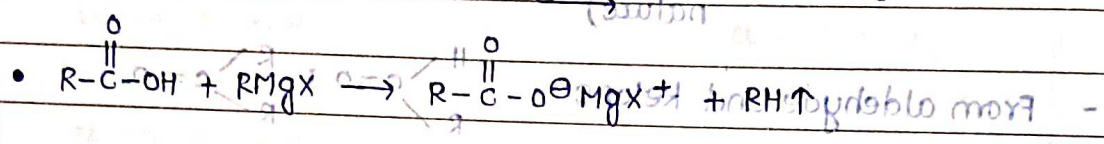 O O
• R-C-OH + RMgX → R-C-O⊖ MgX⁺ + RH↑